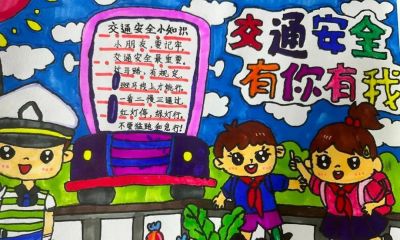 交通安全小知识
小朋友，要记牢，
交通安全最重要。
过马路，有规定，
斑马线上才能行。
一看二慢三通过，
红灯停，绿灯行，
不要猛跑和急行！
交通安全
有你有我